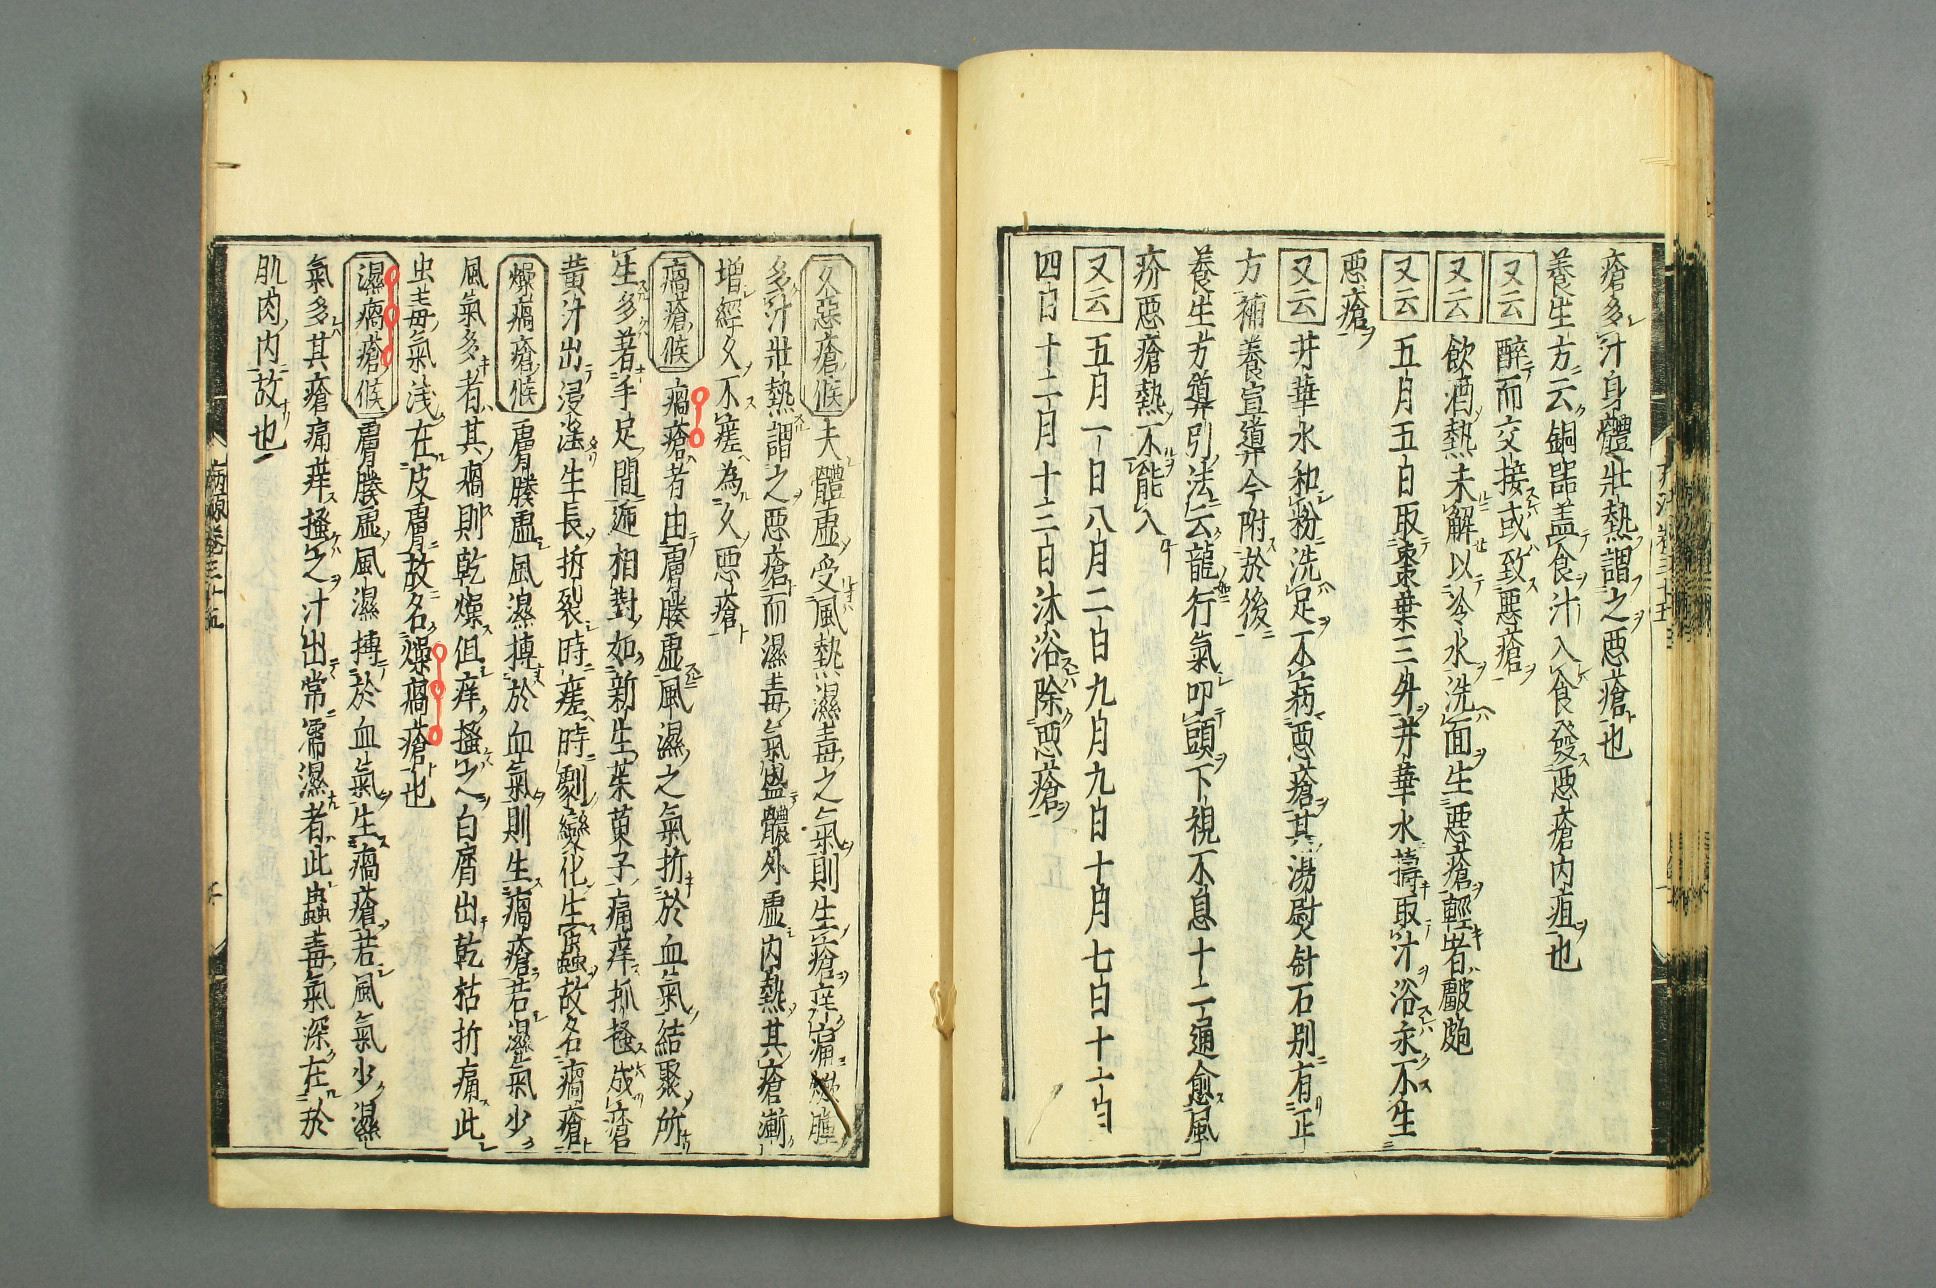 瘡多汁身體壯熱謂之惡瘡也
養生方云銅器盖食汁入食發惡瘡内疽也
又云醉而交接或致惡瘡
又云飲酒熱未解以冷水洗面生惡瘡輕者皻皰
又云五月五日取棗葉三升井華水擣取汁浴永不生
惡瘡
又云井華水和粉洗足不病惡瘡其湯熨針石别有正
方補養宣導今附於後
養生方導引法云龍行氣叩頭下視不息十二通愈風
疥惡瘡熱不能入
又云五月一日八月二日九月九日十月七日十一月
四日十二月十三日沐浴除惡瘡
久惡瘡候夫體虚受風熱濕毒之氣則生瘡痒痛焮腫
多汁壯熱謂之惡瘡而濕毒氣盛體外虚内熱其瘡漸
增經久不瘥為久惡瘡
瘑瘡候瘑瘡者由膚腠虚風濕之氣折於血氣結聚所
生多著手足間遞相對如新生茱萸子痛痒抓搔成瘡
黄汁出浸淫生長拆裂時瘥時劇變化生蟲故名瘑瘡
燥瘑瘡候膚腠虚風濕搏於血氣則生瘑瘡若濕氣少
風氣多者其瘑則乾燥但痒搔之白屑出乾枯折痛此
虫毒氣浅在皮膚故名燥瘑瘡也
濕瘑瘡候膚腠虚風濕搏於血氣生瘑瘡若風氣少濕
氣多其瘡痛痒搔之汁出常濡濕者此蟲毒氣深在於
肌肉内故也
病源卷三十五